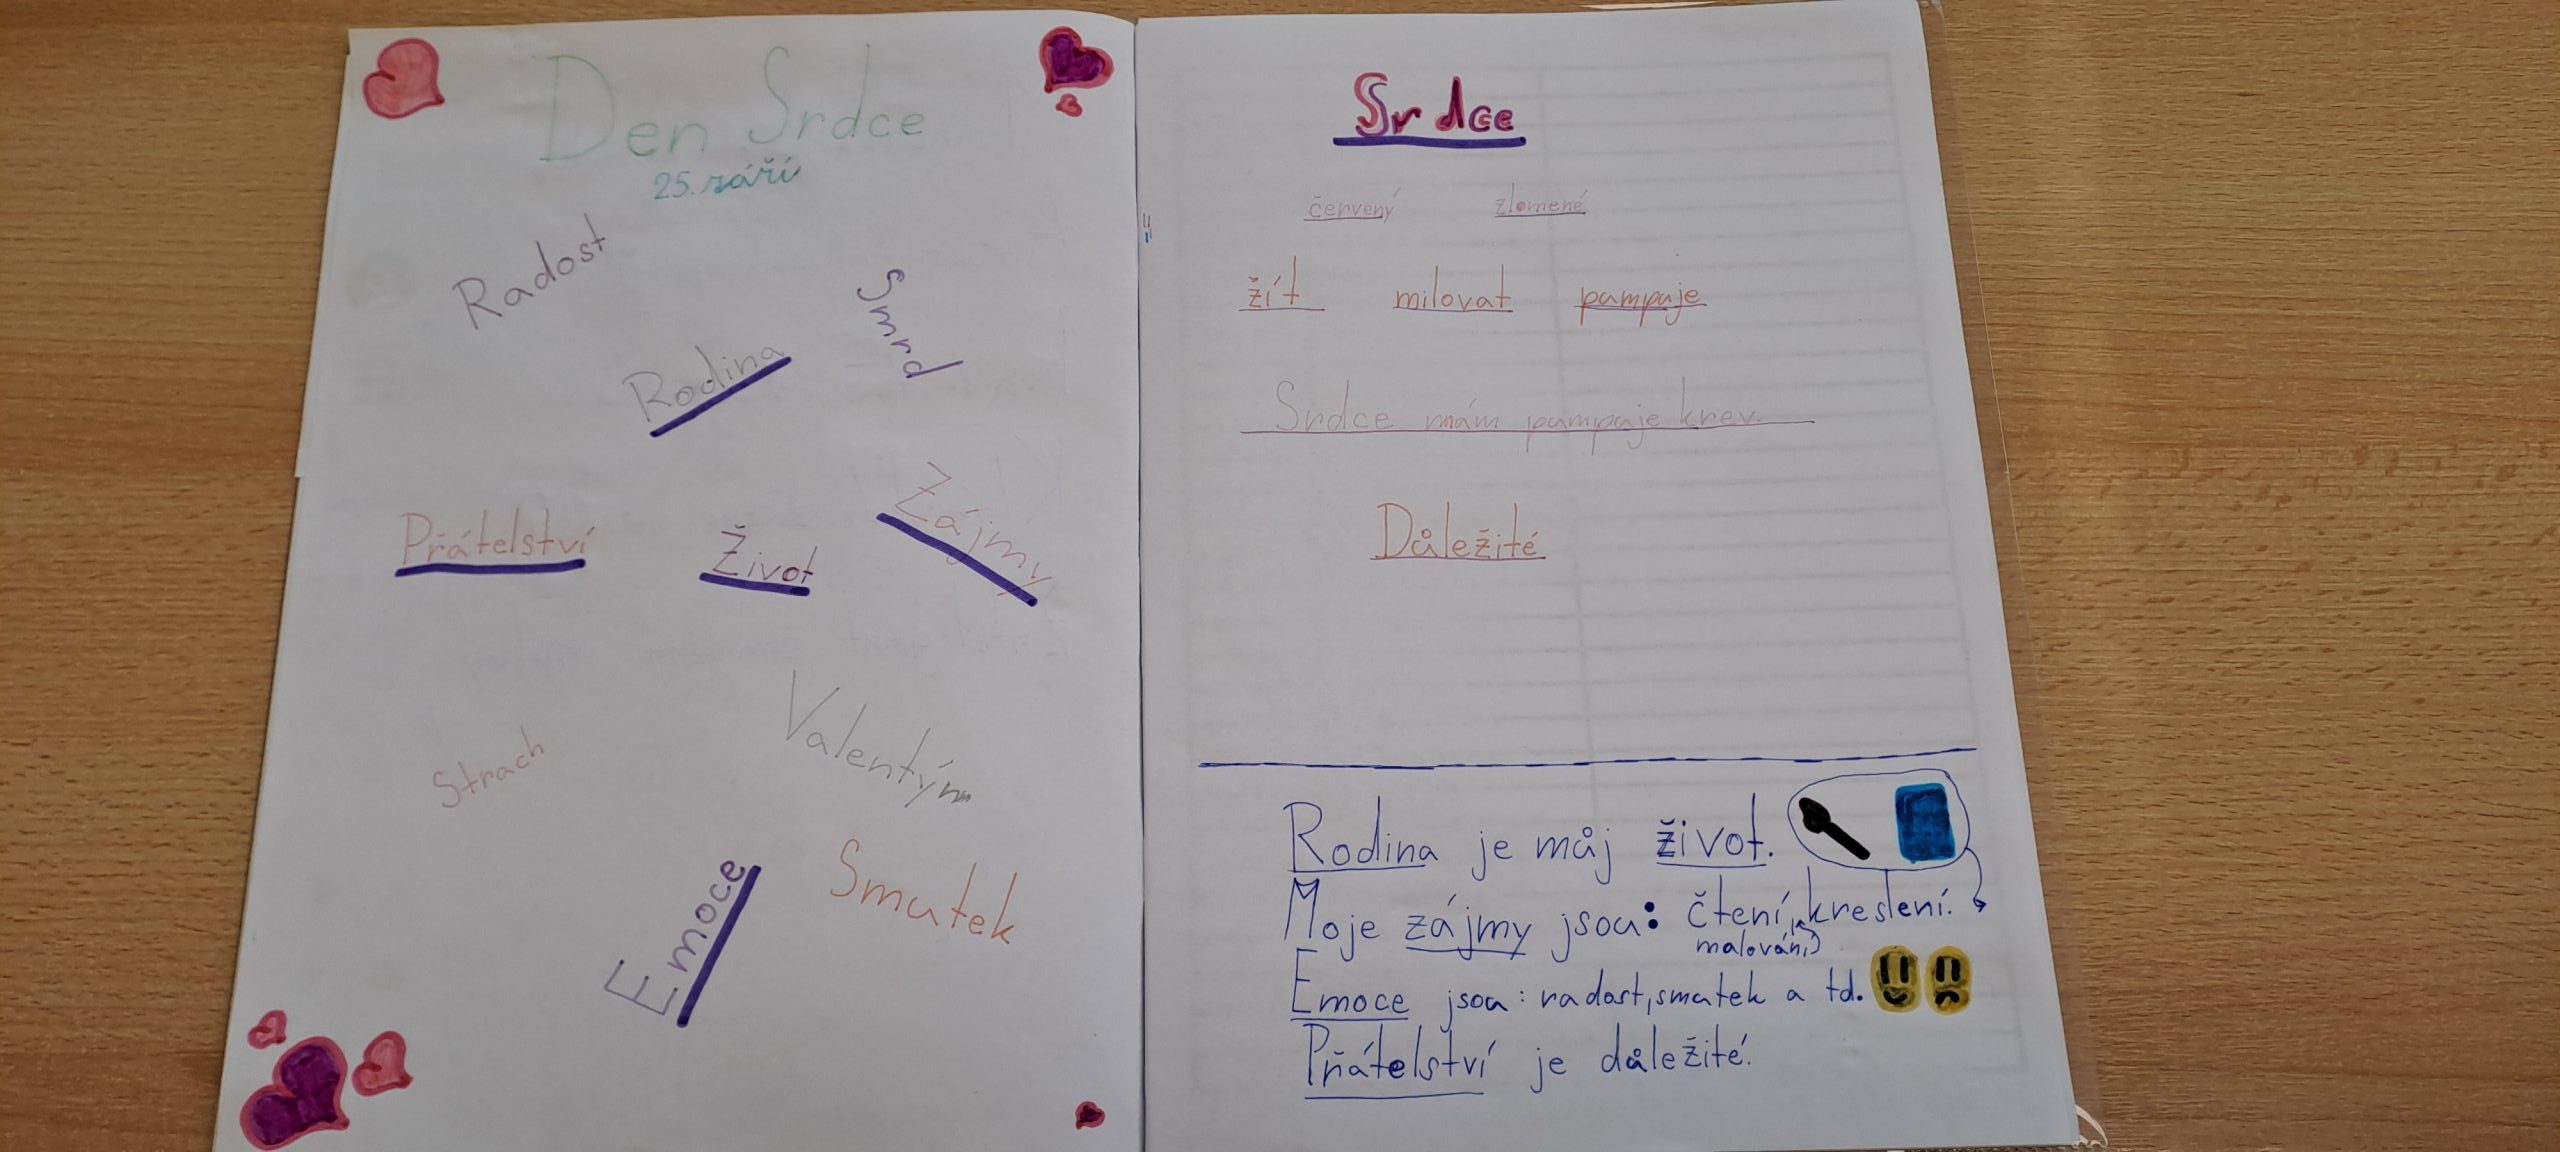 Den Srdce
25. září
Radost
Smrd
Rodina
Přátelství
Život
Zájmy
Valentým
Strach
Emoce
Smutek
Srdce
červený zlomené
žít milovat pumpuje
Srdce mám pumpuje krev.
Důležité
Rodina je můj život.
Moje zájmy jsou: čtení, kreslení.
malování
Emoce jsou: radost, smutek a td.
Přátelství je důležité.